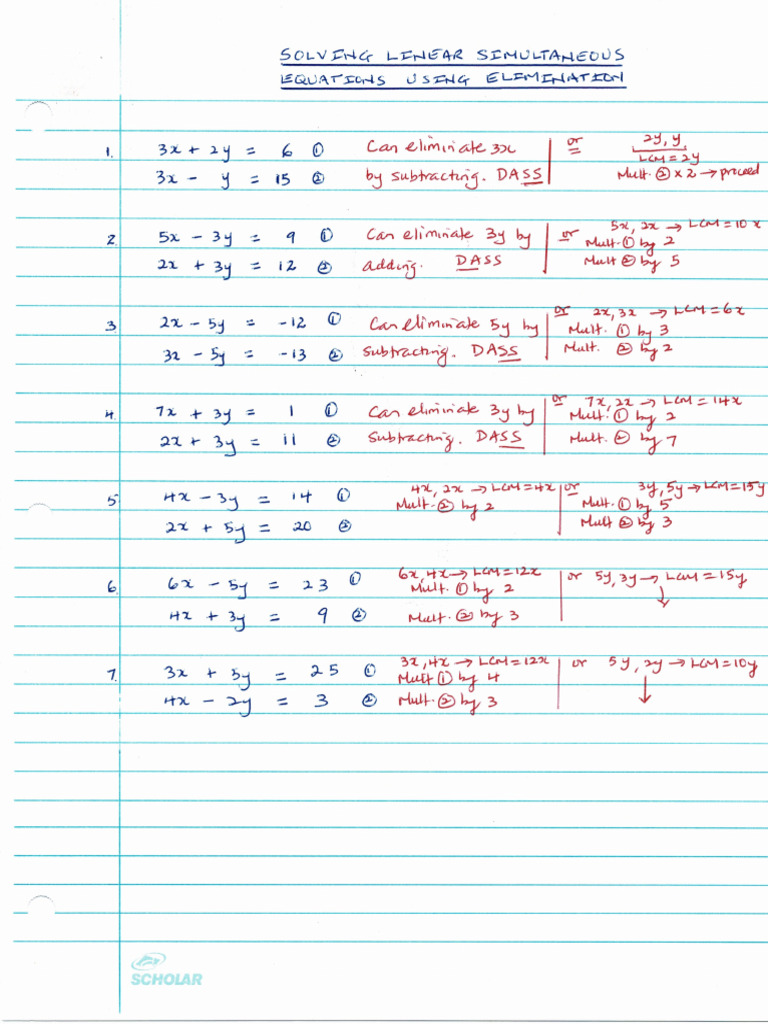 SOLVING LINEAR SIMULTANEOUS
EQUATIONS USING ELIMINATION
1. 3x + 2y = 6 ① Can eliminate 3x or 2y, y,
LCM = 2y
3x - y = 15 ② by subtracting. DASS Mult. ② x 2 → proceed
2. 5x - 3y = 9 ① Can eliminate 3y by or 5x, 2x → LCM = 10x
Mult. ① by 2
2x + 3y = 12 ② adding. DASS Mult ② by 5
3 2x - 5y = -12 ① Can eliminate 5y by or 2x, 3x → LCM = 6x
Mult. ① by 3
3x - 5y = -13 ② subtracting. DASS Mult. ② by 2
4. 7x + 3y = 1 ① Can eliminate 3y by or 7x, 2x → LCM = 14x
Mult. ① by 2
2x + 3y = 11 ② subtracting. DASS Mult. ② by 7
5 4x - 3y = 14 ① 4x, 2x → LCM = 4x or 3y, 5y → LCM = 15y
Mult. ② by 2 Mult. ① by 5
2x + 5y = 20 ② Mult ② by 3
6. 6x - 5y = 23 ① 6x, 4x → LCM = 12x or 5y, 3y → LCM = 15y
Mult. ① by 2 ↓
4x + 3y = 9 ② Mult. ② by 3
7. 3x + 5y = 25 ① 3x, 4x → LCM = 12x or 5y, 2y → LCM = 10y
Mult ① by 4 ↓
4x - 2y = 3 ② Mult. ② by 3
SCHOLAR